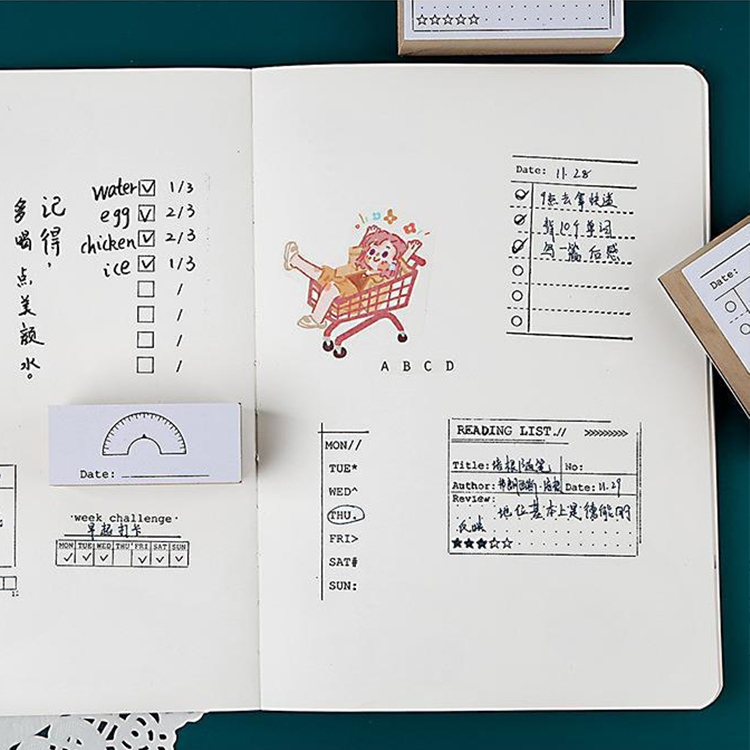 记得，
多喝点美颜水。
water 1/3
egg 2/3
chicken 2/3
ice 1/3
/
/
/
/
Date:
·week challenge·
早起打卡
MON TUE WED THU FRI SAT SUN
A B C D
Date: 11.28
9点去拿快递
背10个单词
写一篇后感
MON//
TUE*
WED^
THU.
FRI>
SAT#
SUN:
READING LIST.// >>>>>>>>>
Title: 培根随笔 No:
Author: 弗朗西斯·培根 Date: 11.29
Review: 地位基本上是德能的
反映
Date: